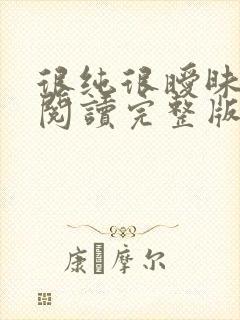 很纯很曖昧
閱讀完整版
康·摩尔